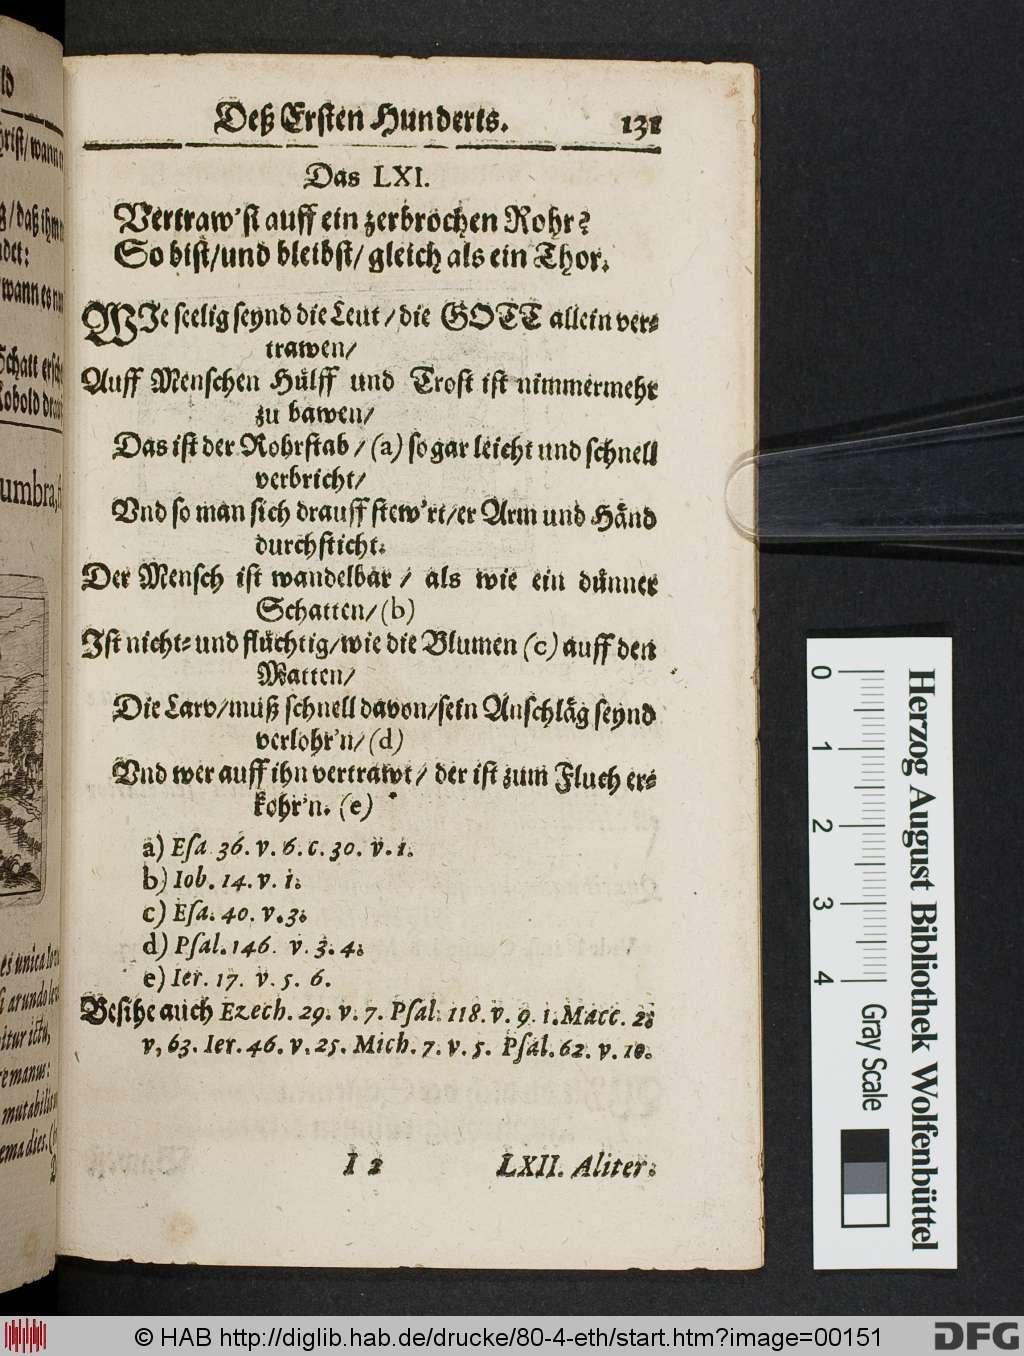 Deß Ersten Hunderts. 131
Das LXI.
Vertraw'st auff ein zerbrochen Rohr?
So bist/und bleibst/gleich als ein Thor.
WJe seelig seynd die Leut/die GOTT allein ver-
trawen/
Auff Menschen Hülff und Trost ist nimmermehr
zu bawen/
Das ist der Rohrstab/(a) so gar leicht und schnell
verbricht/
Vnd so man sich drauff stew'rt/er Arm und Händ
durchsticht.
Der Mensch ist wandelbar/ als wie ein dünner
Schatten/(b)
Jst nicht- und flüchtig/wie die Blumen (c) auff den
Matten/
Die Larv/muß schnell davon/sein Anschläg seynd
verlohr'n/(d)
Vnd wer auff ihn vertrawt/ der ist zum Fluch er-
kohr'n. (e)
a) Esa. 36. v. 6. c. 30. v. 1.
b) Iob. 14. v. 1.
c) Esa. 40. v. 3.
d) Psal. 146. v. 3. 4.
e) Ier. 17. v. 5. 6.
Besihe auch Ezech. 29. v. 7. Psal. 118. v. 9. 1. Macc. 2.
v. 63. Ier. 46. v. 25. Mich. 7. v. 5. Psal. 62. v. 10.
I 2 LXII. Aliter.
hrist/wann
/daß ihm
ndet:
wann es
Schatt
Kobold
umbra,
es unica
arundo
itur ictu,
e manus:
mutabilis
ema dies.
0 1 2 3 4
Herzog August Bibliothek Wolfenbüttel
Gray Scale
© HAB http://diglib.hab.de/drucke/80-4-eth/start.htm?image=00151
DFG